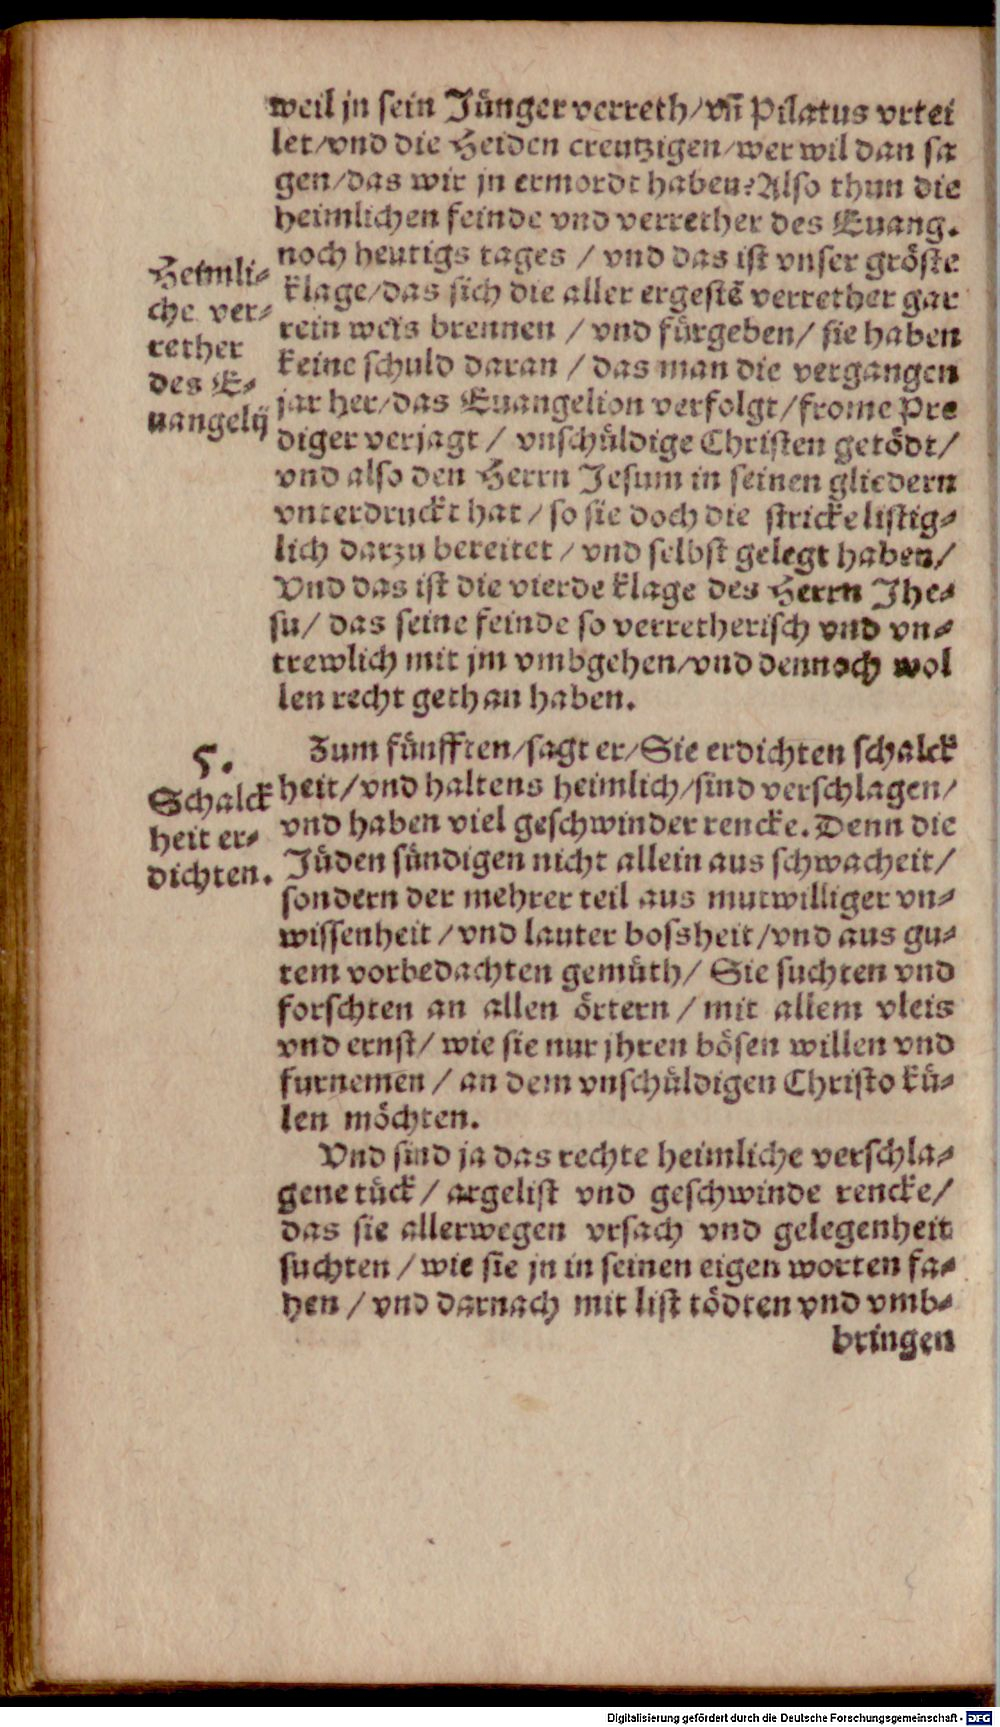 weil jn sein Jünger verreth/vñ Pilatus vrtei
let/vnd die Heiden creutzigen/wer wil dan sa
gen/das wir jn ermordt haben? Also thun die
heimlichen feinde vnd verrether des Euang.
noch heutigs tages / vnd das ist vnser gröste
klage/das sich die aller ergestē verrether gar
rein weis brennen / vnd fürgeben/ sie haben
keine schuld daran / das man die vergangen
jar her/das Euangelion verfolgt/frome Pre
diger verjagt / vnschüldige Christen getödt/
vnd also den Herrn Jesum in seinen gliedern
vnterdruckt hat / so sie doch die stricke listig-
lich darzu bereitet / vnd selbst gelegt haben/
Vnd das ist die vierde klage des Herrn Jhe-
su/ das seine feinde so verretherisch vnd vn-
trewlich mit jm vmbgehen/vnd dennoch wol
len recht gethan haben.
Heimli-
che ver-
rether
des E-
uangelij
Zum fünfften/sagt er/Sie erdichten schalck
heit/vnd haltens heimlich/sind verschlagen/
vnd haben viel geschwinder rencke. Denn die
Jüden sündigen nicht allein aus schwacheit/
sondern der mehrer teil aus mutwilliger vn-
wissenheit / vnd lauter bossheit/vnd aus gu-
tem vorbedachten gemüth/ Sie suchten vnd
forschten an allen örtern / mit allem vleis
vnd ernst/ wie sie nur jhren bösen willen vnd
furnemen / an dem vnschüldigen Christo kü-
len möchten.
5.
Schalck
heit er-
dichten.
Vnd sind ja das rechte heimliche verschla-
gene tück / argelist vnd geschwinde rencke/
das sie allerwegen vrsach vnd gelegenheit
suchten / wie sie jn in seinen eigen worten fa-
hen / vnd darnach mit list tödten vnd vmb-
bringen
Digitalisierung gefördert durch die Deutsche Forschungsgemeinschaft - DFG